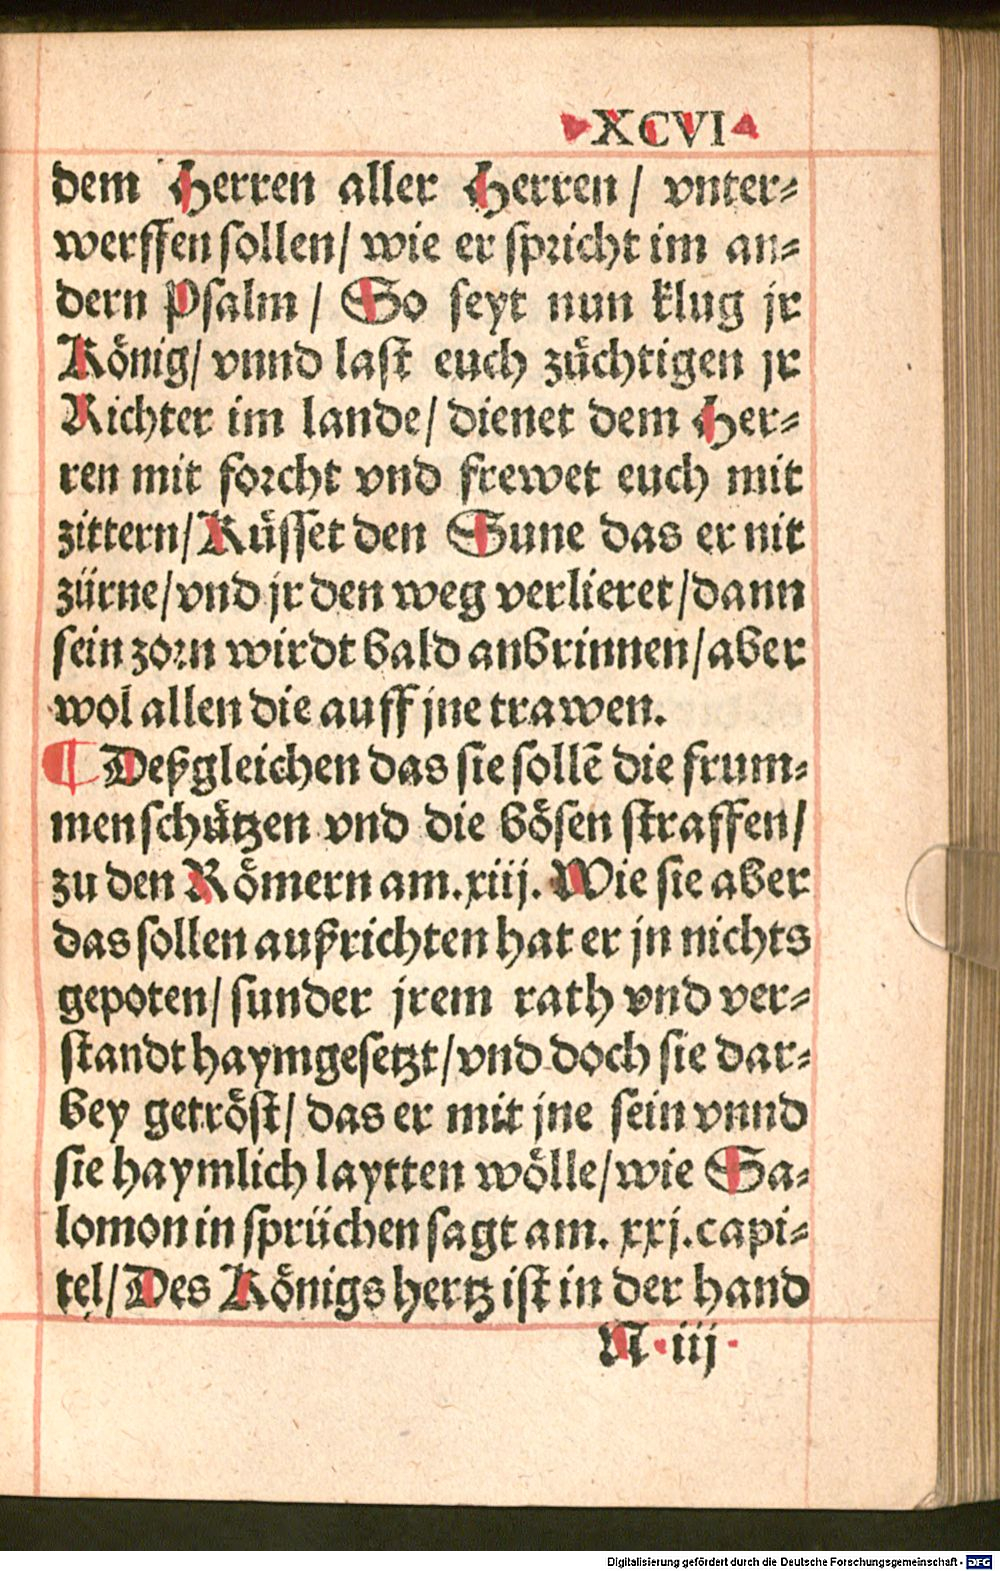 XCVI
dem Herren aller Herren / vnter-
werffen sollen / wie er spricht im an-
dern Psalm / So seyt nun klug jr
König / vnnd last euch züchtigen jr
Richter im lande / dienet dem Her-
ren mit forcht vnd frewet euch mit
zittern / Küsset den Sune das er nit
zürne / vnd jr den weg verlieret / dann
sein zorn wirdt bald anbrinnen / aber
wol allen die auff jne trawen.
¶ Deßgleichen das sie sollē die frum-
men schützen vnd die bösen straffen /
zu den Römern am .xiij. Wie sie aber
das sollen außrichten hat er jn nichts
gepoten / sunder jrem rath vnd ver-
standt haymgesetzt / vnd doch sie dar-
bey getröst / das er mit jne sein vnnd
sie haymlich laytten wölle / wie Sa-
lomon in sprüchen sagt am. xxj. capi-
tel / Des Königs hertz ist in der hand
N iij
Digitalisierung gefördert durch die Deutsche Forschungsgemeinschaft - DFG